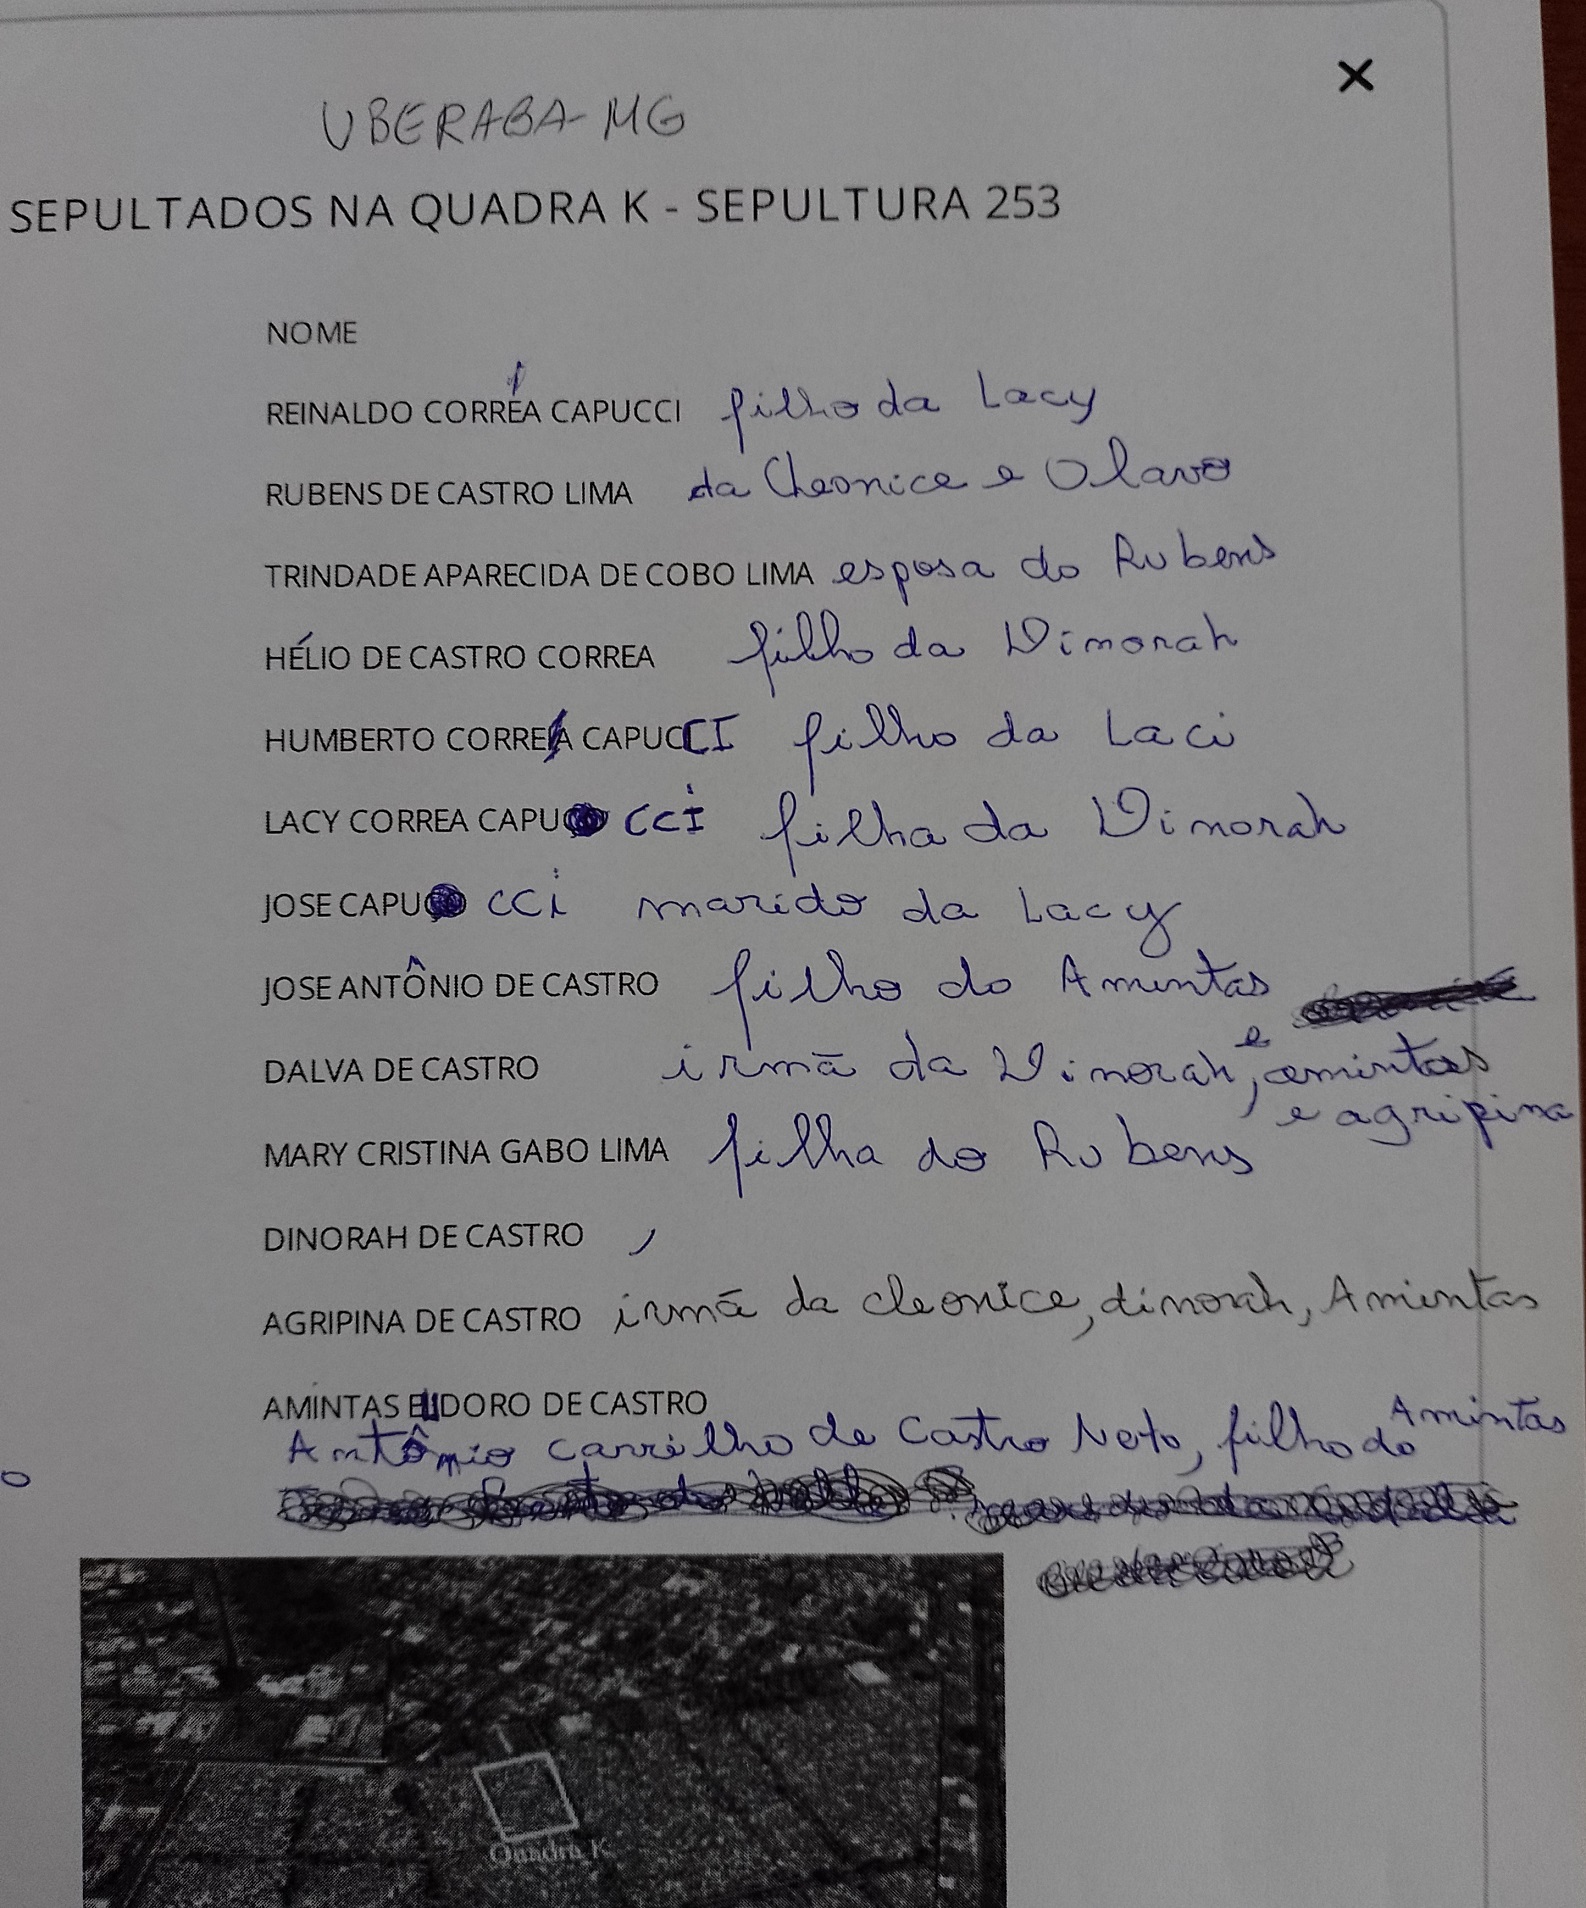 UBERABA-MG
SEPULTADOS NA QUADRA K - SEPULTURA 253
NOME
REINALDO CORRÉA CAPUCCI filho da Lacy
RUBENS DE CASTRO LIMA da Cleonice e Olavo
TRINDADE APARECIDA DE COBO LIMA esposa do Rubens
HÉLIO DE CASTRO CORREA filho da Dinorah
HUMBERTO CORREA CAPUCCI filho da Laci
LACY CORREA CAPU CCI filha da Dinorah
JOSE CAPU CCI marido da Lacy
JOSE ANTÔNIO DE CASTRO filho do Amintas
DALVA DE CASTRO irmã da Dinorah, e amintas
e agripina
MARY CRISTINA GABO LIMA filha do Rubens
DINORAH DE CASTRO
AGRIPINA DE CASTRO irmã da cleonice, dinorah, Amintas
AMINTAS ELIDORO DE CASTRO
Antônio Carrilho de Castro Neto, filho do Amintas
o
Quadra K